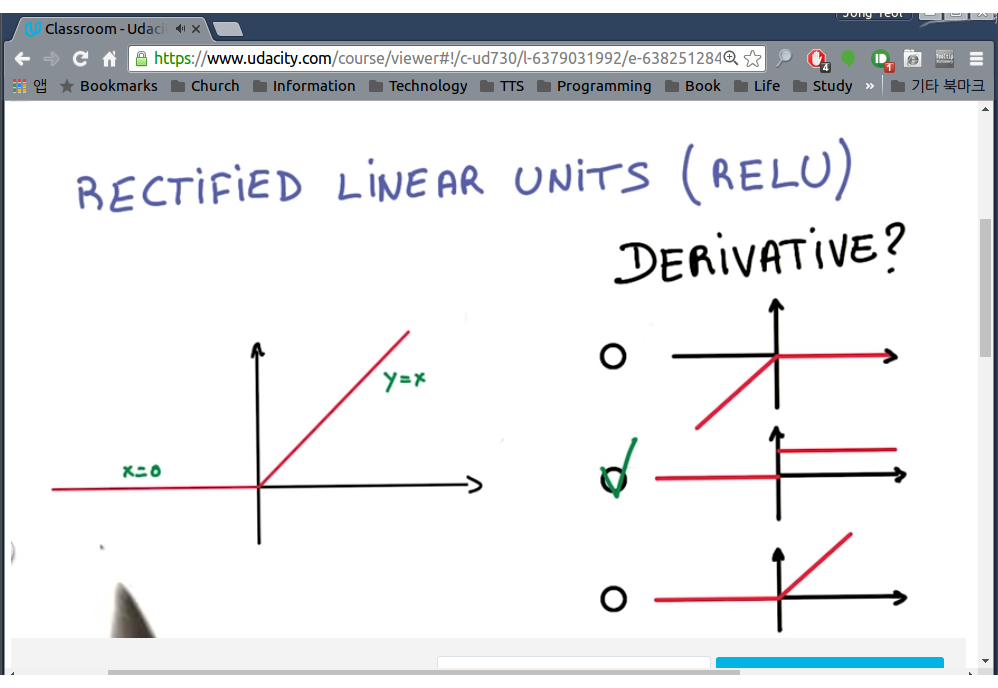 Jong Yeol
Classroom - Udaci
https://www.udacity.com/course/viewer#!/c-ud730/l-6379031992/e-638251284
4
1
앱 Bookmarks Church Information Technology TTS Programming Book Life Study » 기타 북마크
RECTiFiED LiNEAR UNiTS (RELU)
DERiVATiVE?
y=x
x=0